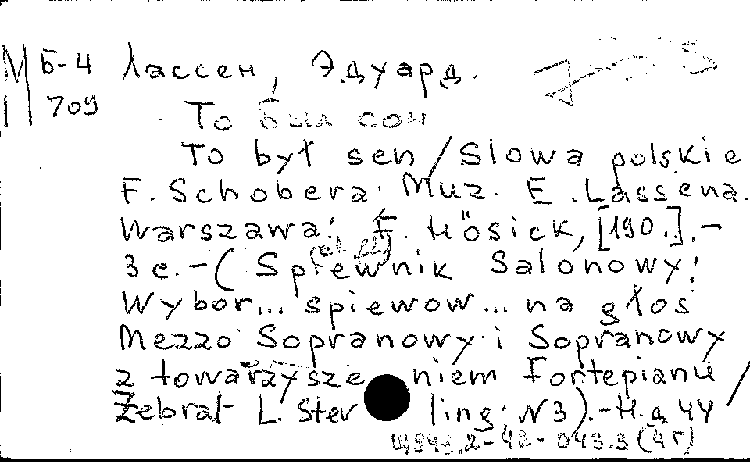 М Б-4 Лассен, Эдуард.
П 709
То был сон
To był sen / Slowa polskie
F. Schobera. Muz. E. Lassena.
Warszawa: F. Hösick, [190.]. –
3 с. – (Spiewnik Salonowy:
Wybor... spiewow... na głos
Mezzo Sopranowy i Sopranowy
z towarzyszeniem Fortepianu /
Zebrał L. Sterling; N3). – Н.д. 44